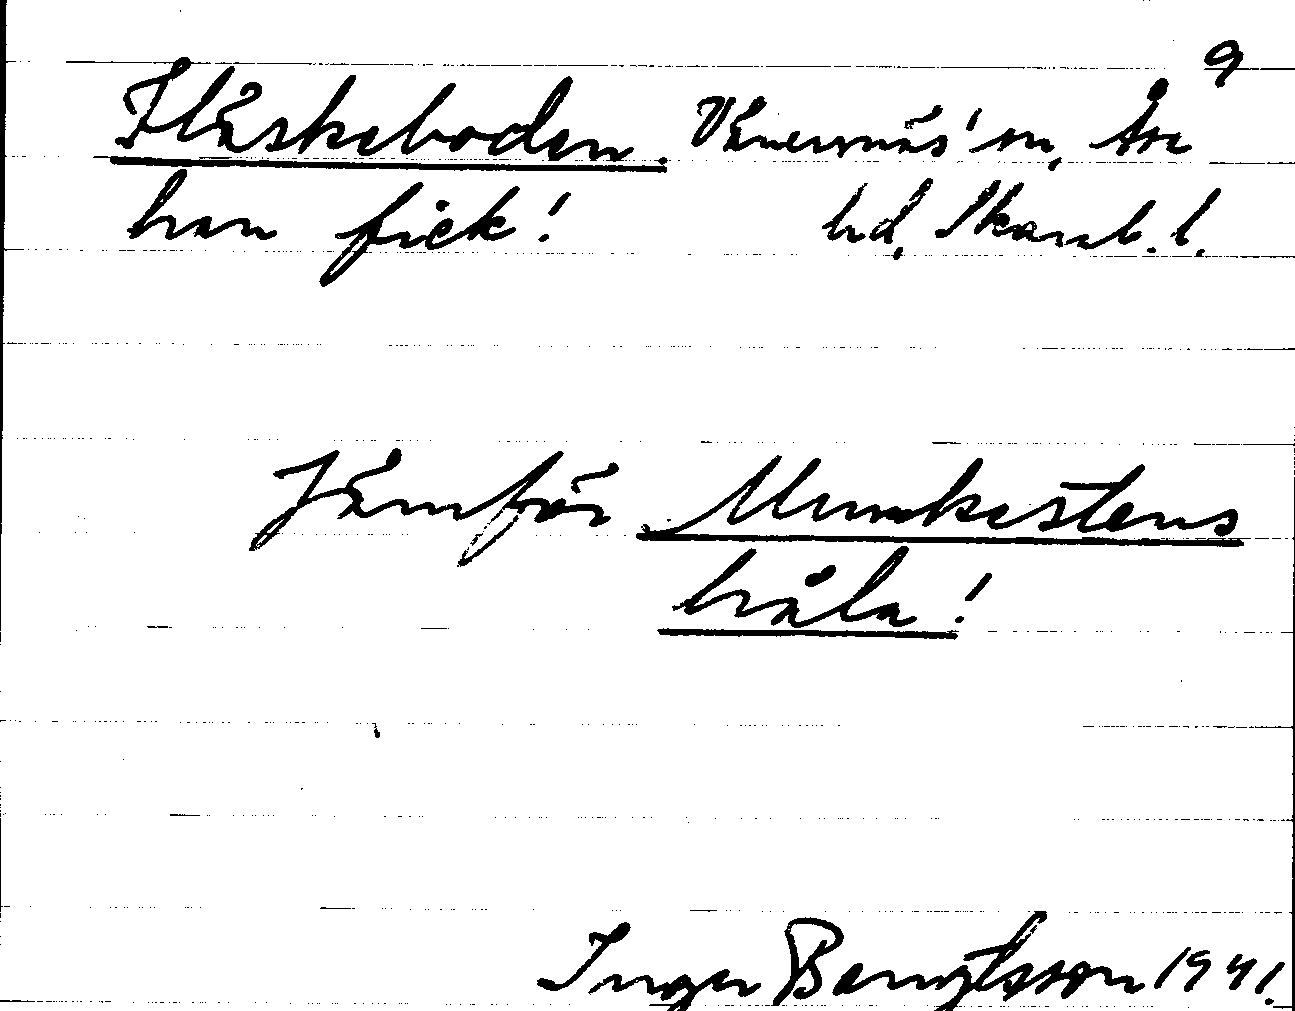 9
Fläskeboden. Vänersnäs' sn, Åse
han fick! hd, Skarab. l.
Jämför Munkestens
håla!
Inger Bengtsson 1941.